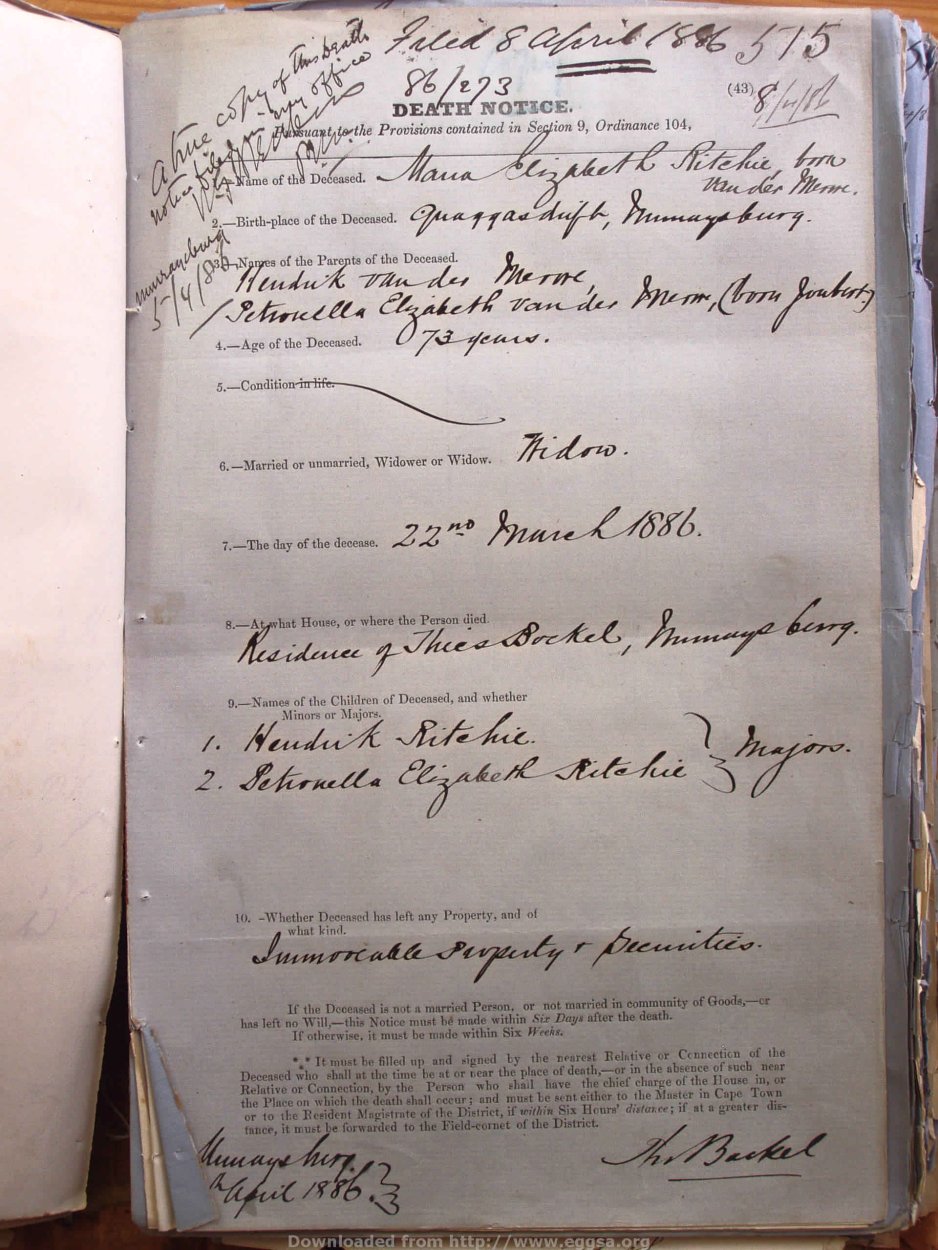 Filed 8 April 1886 515
86/273
(43) 8/4/86
A true copy of this Death
notice filed in my office
Murraysburg
5/4/86
DEATH NOTICE.
Pursuant to the Provisions contained in Section 9, Ordinance 104,
1.—Name of the Deceased. Maria Elizabeth Ritchie, born
van der Merwe.
2.—Birth-place of the Deceased. Quaggasdrift, Murraysburg.
3.—Names of the Parents of the Deceased.
Hendrik van der Merwe,
Petronella Elizabeth van der Merwe, (born Joubert)
4.—Age of the Deceased. 73 years.
5.—Condition in life.
6.—Married or unmarried, Widower or Widow. Widow.
7.—The day of the decease. 22nd March 1886.
8.—At what House, or where the Person died.
Residence of Thies Bockel, Murraysburg.
9.—Names of the Children of Deceased, and whether
Minors or Majors.
1. Hendrik Ritchie.
2. Petronella Elizabeth Ritchie } Majors.
10. -Whether Deceased has left any Property, and of
what kind.
Immoveable Property & Securities.
If the Deceased is not a married Person, or not married in community of Goods,—or
has left no Will,—this Notice must be made within Six Days after the death.
If otherwise, it must be made within Six Weeks.
*** It must be filled up and signed by the nearest Relative or Connection of the
Deceased who shall at the time be at or near the place of death,—or in the absence of such near
Relative or Connection, by the Person who shall have the chief charge of the House in, or
the Place on which the death shall occur; and must be sent either to the Master in Cape Town
or to the Resident Magistrate of the District, if within Six Hours' distance; if at a greater dis-
tance, it must be forwarded to the Field-cornet of the District.
Murraysburg
April 1886.
Ths Bockel
Downloaded from http://www.eggsa.org